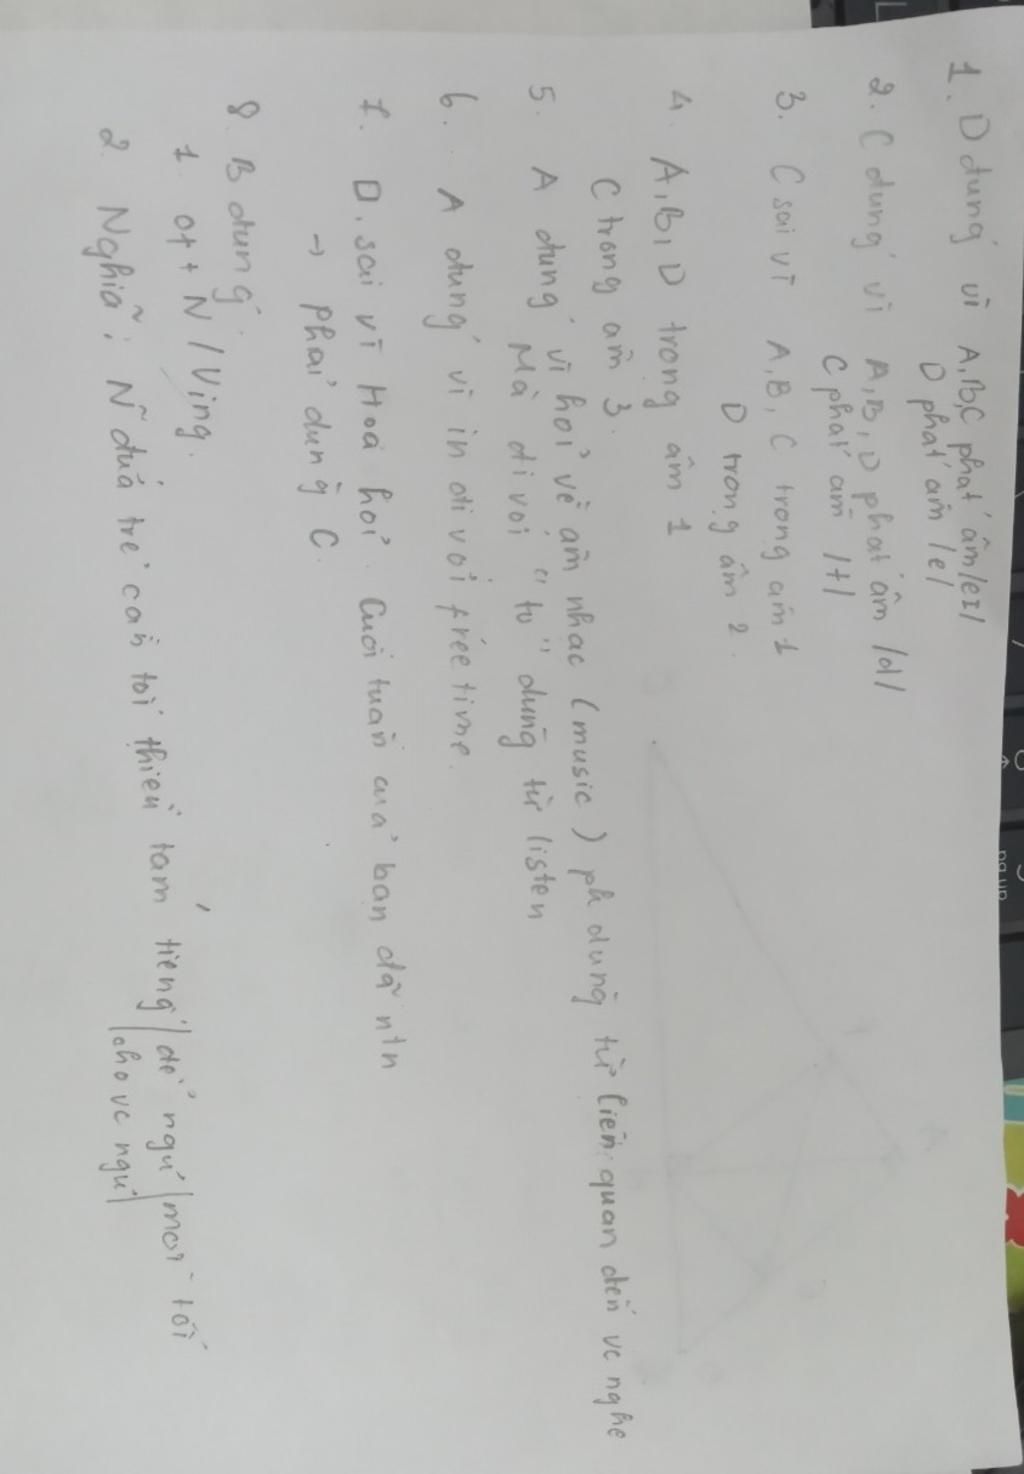 1. D đúng vì A,B,C phát âm /eI/
D phát âm /e/
2. C đúng vì A,B,D phát âm /d/
C phát âm /t/
3. C sai vì A,B,C trọng âm 1
D trọng âm 2.
4. A,B,D trọng âm 1
C trọng âm 3.
5. A đúng vì hỏi về âm nhạc (music) ph dùng từ liên quan đến vc nghe
Mà đi với "to" dùng từ listen
6. A đúng vì in đi với free time.
7. D. sai vì Hoa hỏi. Cuối tuần của bạn đã ntn
→ phải dùng C.
8. B đúng.
1. of + N / Ving.
2. Nghĩa: N~ đứa trẻ cần tối thiểu tám tiếng / để ngủ / mỗi tối
/cho vc ngủ/